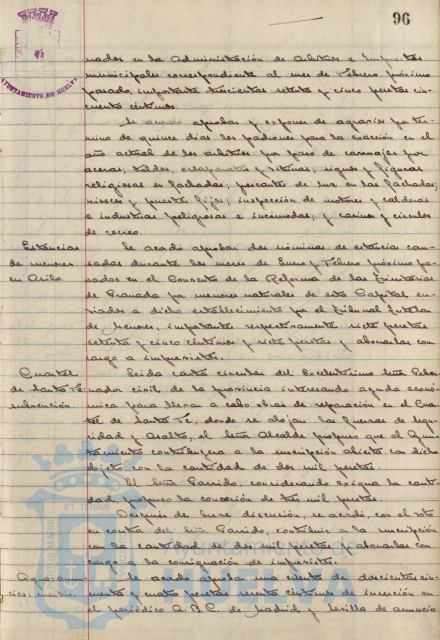 96
AYUNTAMIENTO DE HUELVA
nados en la Administración de Arbitrios e Impuestos
municipales correspondiente al mes de Febrero próximo
pasado, importante trescientas setenta y cinco pesetas cin-
cuenta céntimos.
Se acordó aprobar y exponer de agravios por tér-
mino de quince días los padrones para la exacción en el
año actual de los arbitrios por paso de carruajes por
aceras; toldos, y vitrinas; signos y figuras
religiosas en fachadas; pescantes de luz en las fachadas;
kioscos y puestos fijos; inspección de motores y calderas
e industrias peligrosas e incómodas; y casinos y círculos
de recreo.
Estancias
de menores
en Asilo.
Se acordó aprobar dos nóminas de estancias cau-
sadas durante los meses de Enero y Febrero próximo pa-
sados en el Convento de la Reforma de las Trinitarias
de Granada por menores naturales de esta Capital en-
viados a dicho establecimiento por el Tribunal Tutelar
de Menores, importantes respectivamente siete pesetas
setenta y cinco céntimos y siete pesetas y abonarlas con
cargo a imprevistos.
Cuartel
de Santa Fé,
subvención.
Leida carta circular del Excelentísimo Señor Gober-
nador civil de la provincia interesando ayuda econó-
mica para llevar a cabo obras de reparación en el Cuar-
tel de Santa Fé, donde se alojan las fuerzas de Segu-
ridad y Asalto, el Señor Alcalde propuso que el Ayun-
tamiento contribuyera a la suscripción abierta con dicho
objeto con la cantidad de dos mil pesetas.
El Señor Garrido, considerando exigua la canti-
dad, propuso la concesión de tres mil pesetas.
Después de breve discusión, se acordó, con el voto
en contra del Señor Garrido, contribuir a la suscripción
con la cantidad de dos mil pesetas y abonarlas con
cargo a la consignación de imprevistos.
Se acordó aprobar una cuenta de doscientas cin-
cuenta y cuatro pesetas sesenta céntimos de inserción en
el periódico A.B.C. de Madrid y Sevilla de anuncio